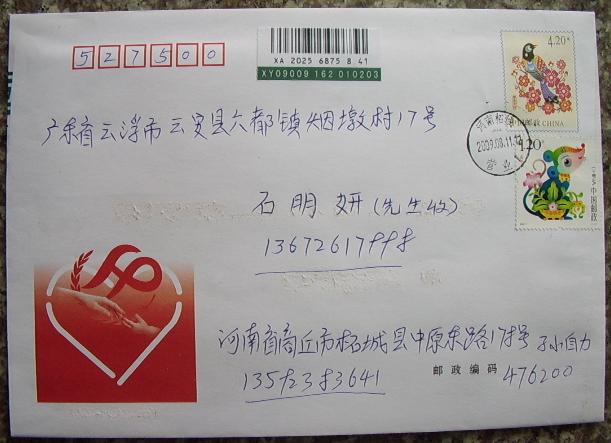 527500
XA 2025 6875 8 41
XY09009 162 010203
4.20
中国邮政 CHINA
2009.08.11.
营业
1.20
中国邮政
广东省云浮市云安县六都镇烟墩村17号
石明妍(先生收)
河南省商丘市柘城县中原东路178号 孙自力
邮政编码 476200